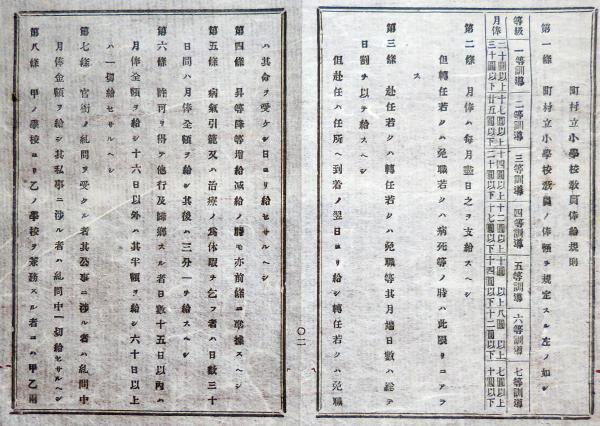 町村立小學校敎員俸給規則
第一條 町村立小學校敎員ノ俸額ヲ規定スル左ノ如シ
等級 一等訓導 二等訓導 三等訓導 四等訓導 五等訓導 六等訓導 七等訓導
月俸 二十圓以上三十圓以下 十七圓以上廿五圓以下 十四圓以上二十圓以下 十二圓以上十七圓以下 十圓以上十四圓以下 八圓以上十二圓以下 七圓以上十圓以下
第二條 月俸ハ每月盡日之ヲ支給スヘシ
但轉任若クハ免職若クハ病死等ノ時ハ此限リニアラ
ス
第三條 赴任若クハ轉任若クハ免職等其月端日數ハ總テ
日割ヲ以テ給スヘシ
但赴任ハ任所ヘ到着ノ翌日ヨリ給シ轉任若クハ免職
〇二
ハ其命ヲ受ケシ日ヨリ給セサルヘシ
第四條 昇等降等增給減給ノ時モ亦前條ニ準據スヘシ
第五條 病氣引籠又ハ治療ノ爲休暇ヲ乞フ者ハ日數三十
日間ハ月俸全額ヲ給シ其後ハ三分一ヲ給スヘシ
第六條 許可ヲ得テ他行及歸鄕スル者日數十五日以內ハ
月俸全額ヲ給シ十六日以外ハ其半額ヲ給シ六十日以上
ハ一切給セサルヘシ
第七條 官衙ノ糺問ヲ受クル者其公事ニ涉ル者ハ糺問中
月俸全額ヲ給シ其私事ニ涉ル者ハ糺問中一切給セサルヘシ
第八條 甲ノ學校ヨリ乙ノ學校ヲ兼務スル者ニハ甲乙兩